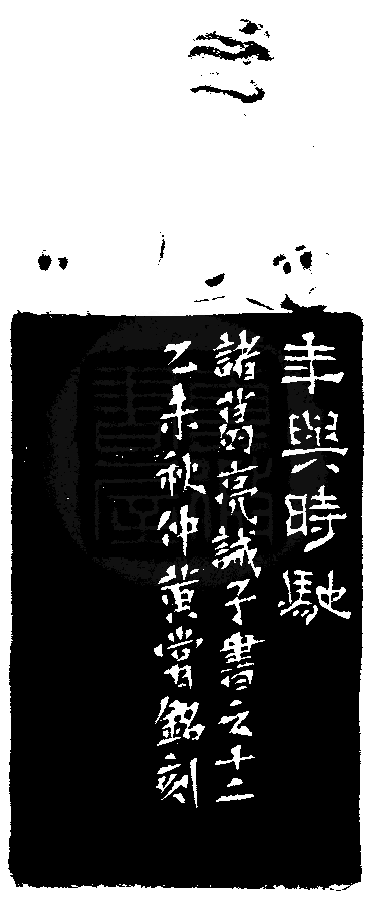 年與時馳
諸葛亮誡子書之十二
乙未秋仲黄嘗銘刻